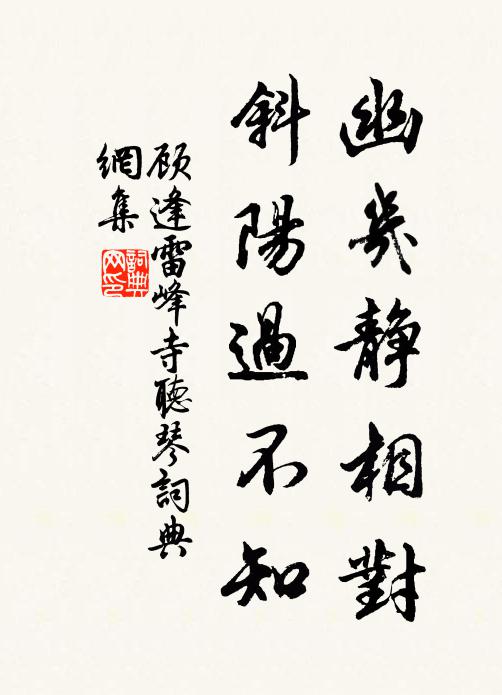 幽幾静相對
斜陽過不知
顧逢雷峰寺聽琴詞典
網集
詞典
网印